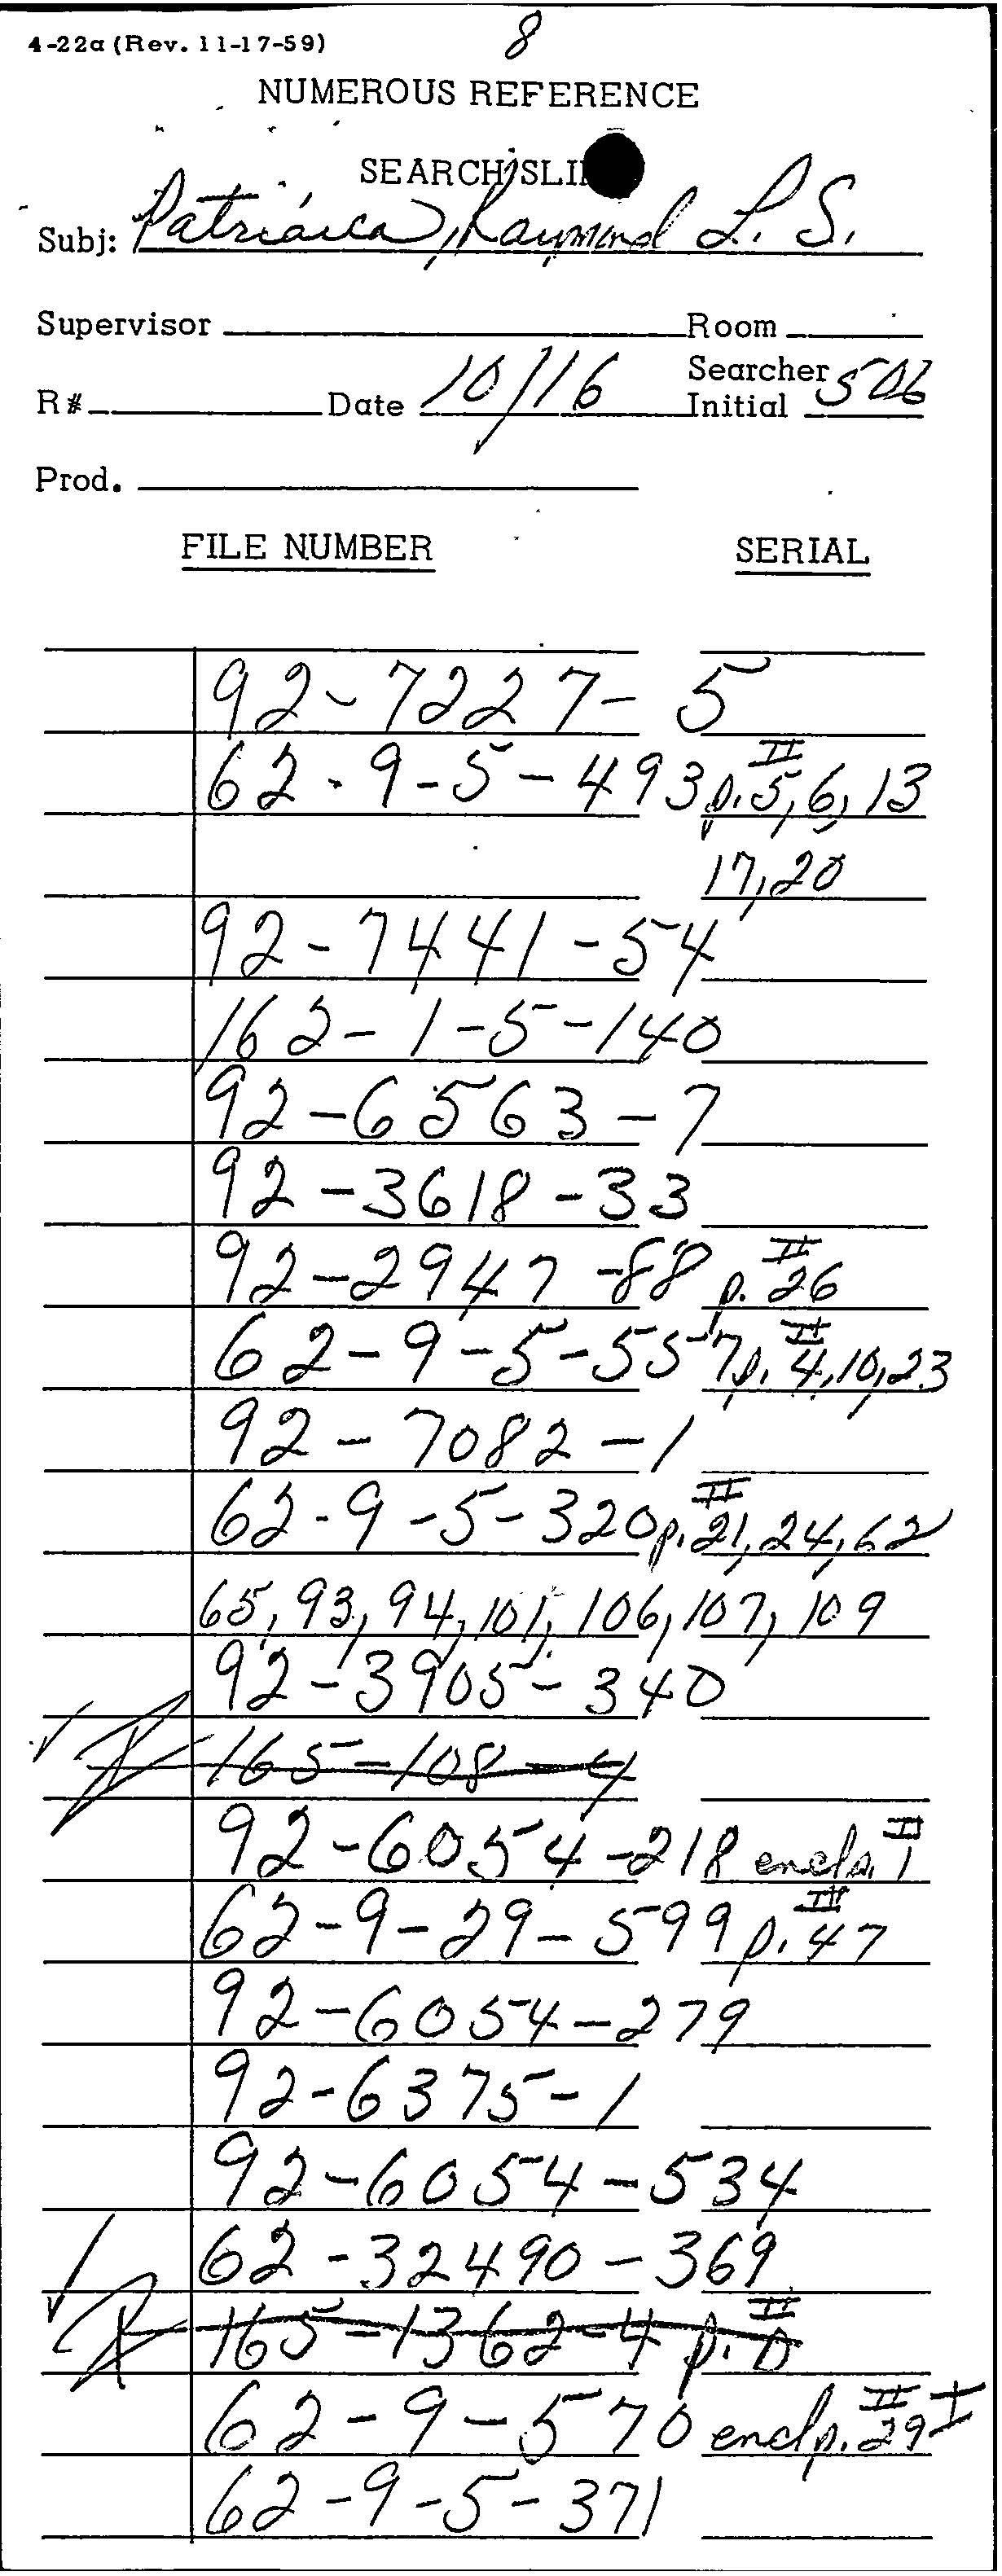 4-22a (Rev. 11-17-59)
8
NUMEROUS REFERENCE
SEARCH SLI
Subj: Patriarca, Raymond L. S.
Supervisor Room
R# Date 10/16 Searcher Initial 506
Prod.
FILE NUMBER SERIAL
92-7227-5
62-9-5-493 p. II 5, 6, 13
17, 20
92-7441-54
162-1-5-140
92-6563-7
92-3618-33
92-2947-88 p. II 26
62-9-5-557 p. II 4, 10, 23
92-7082-1
62-9-5-320 p. II 21, 24, 62
65, 93, 94, 101, 106, 107, 109
92-3905-340
165-108-4
92-6054-218 encl p. II 1
62-9-29-599 p. II 47
92-6054-279
92-6375-1
92-6054-534
62-32490-369
165-1362-4 p. II D
62-9-570 encl p. II 29 I
62-9-5-371